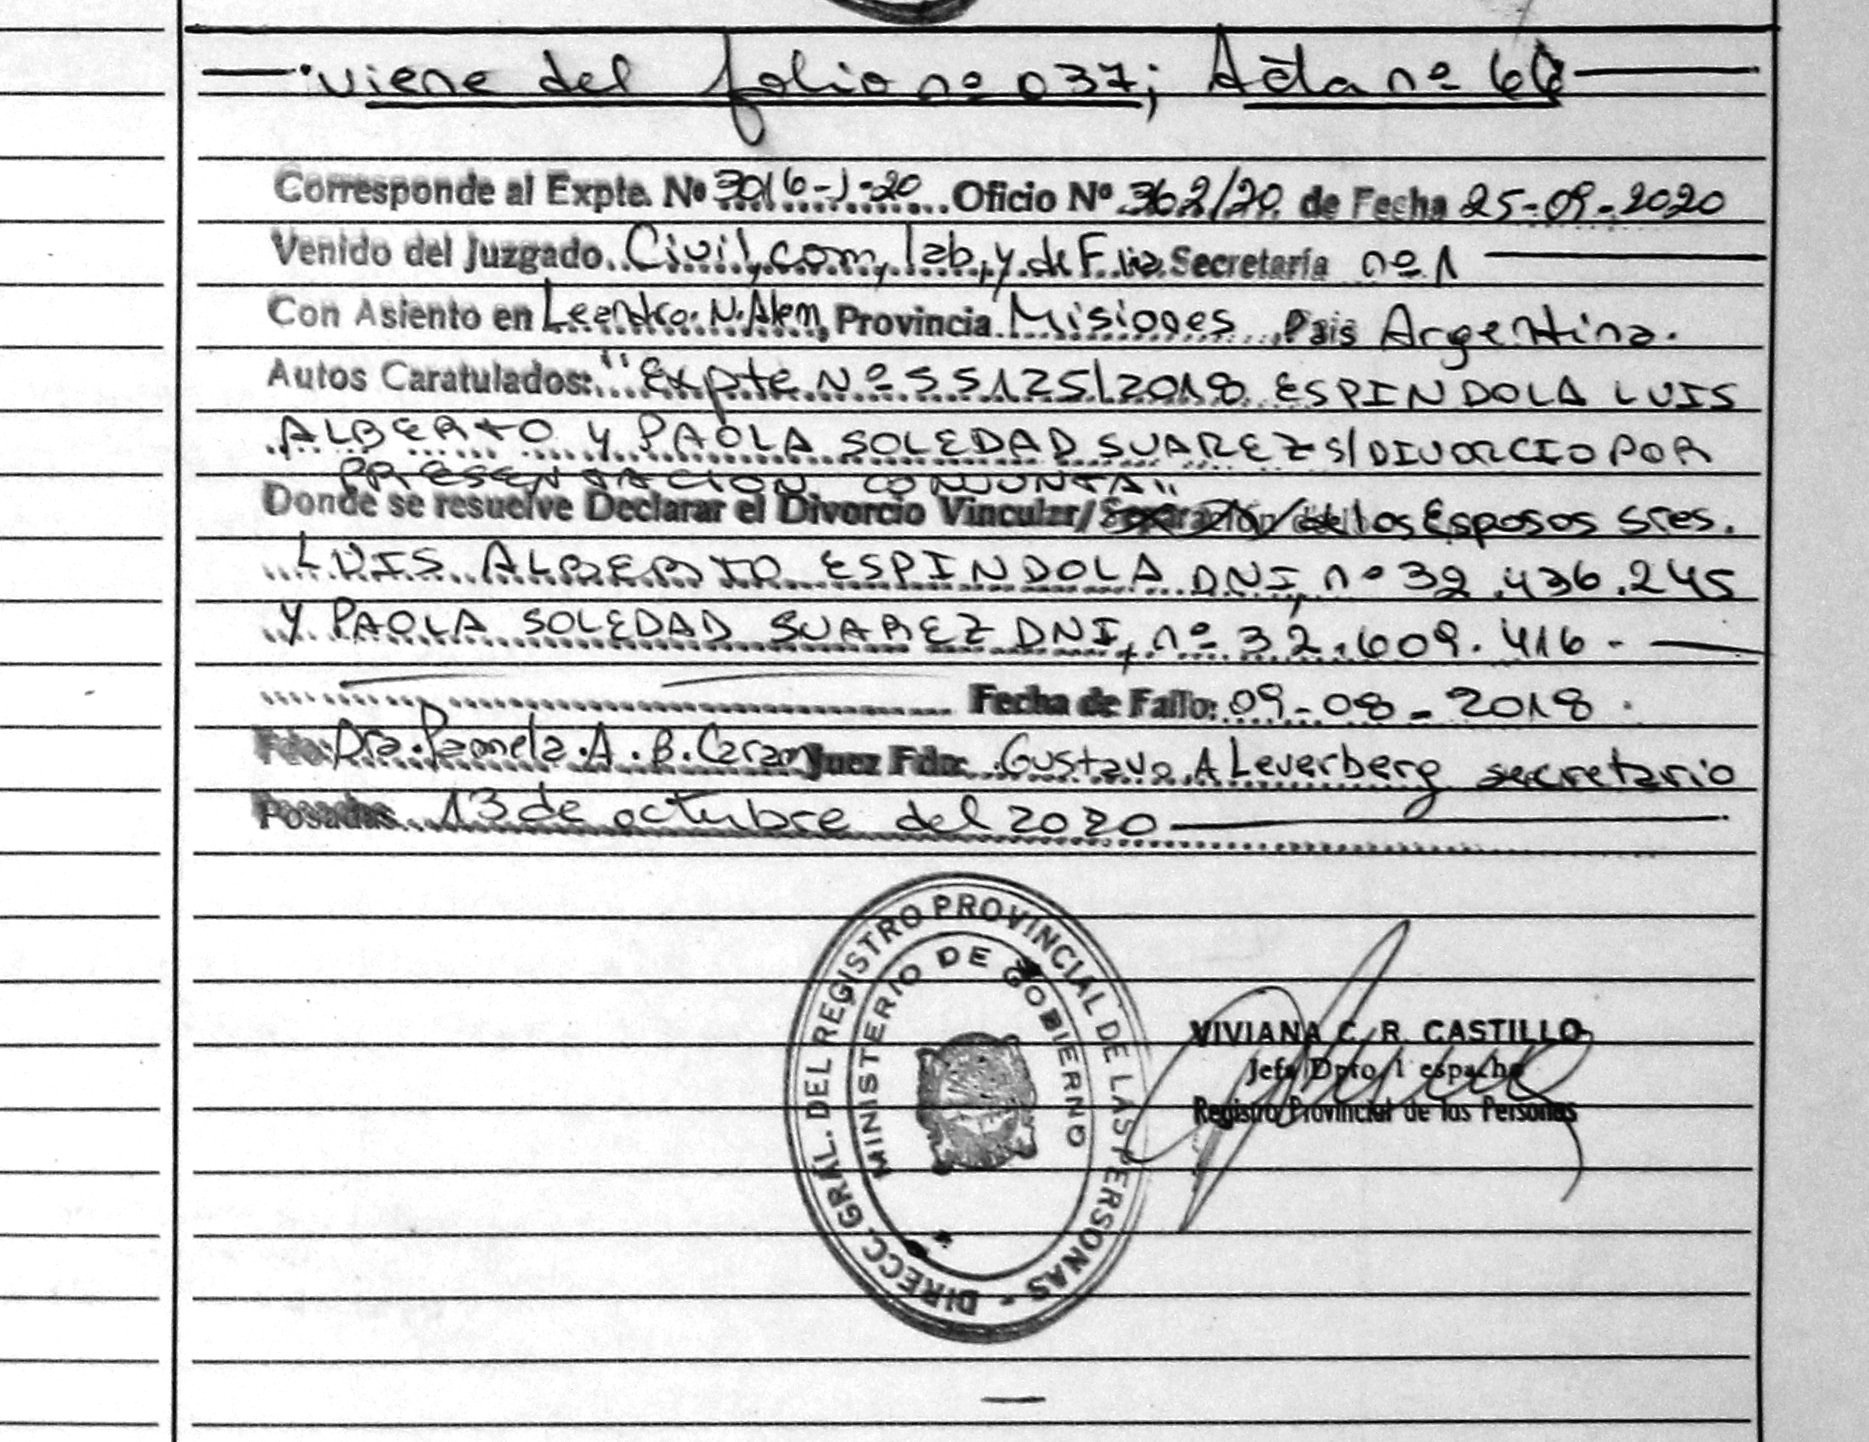 viene del folio nº 037; Acta nº 66
Corresponde al Expte. Nº 3016-J-20 Oficio Nº 362/20 de Fecha 25-09-2020
Venido del Juzgado Civil, com, lab, y de Flia Secretaría nº 1
Con Asiento en Leandro N. Alem, Provincia Misiones País Argentina.
Autos Caratulados: "Expte Nº 55125/2018 ESPINDOLA LUIS
ALBERTO Y PAOLA SOLEDAD SUAREZ S/DIVORCIO POR
PRESENTACION CONJUNTA"
Donde se resuelve Declarar el Divorcio Vincular/ de los Esposos Sres.
LUIS ALBERTO ESPINDOLA DNI, nº 32.436.245
Y PAOLA SOLEDAD SUAREZ DNI, nº 32.609.416.-
Fecha de Fallo: 09-08-2018.
Fdo: Dra. Pamela A. B. Juez Fdo: Gustavo A Leverberg secretario
Posadas 13 de octubre del 2020
DIRECC. GRAL. DEL REGISTRO PROVINCIAL DE LAS PERSONAS -
MINISTERIO DE GOBIERNO
VIVIANA C. R. CASTILLO
Jefa Dpto. Despacho
Registro Provincial de las Personas